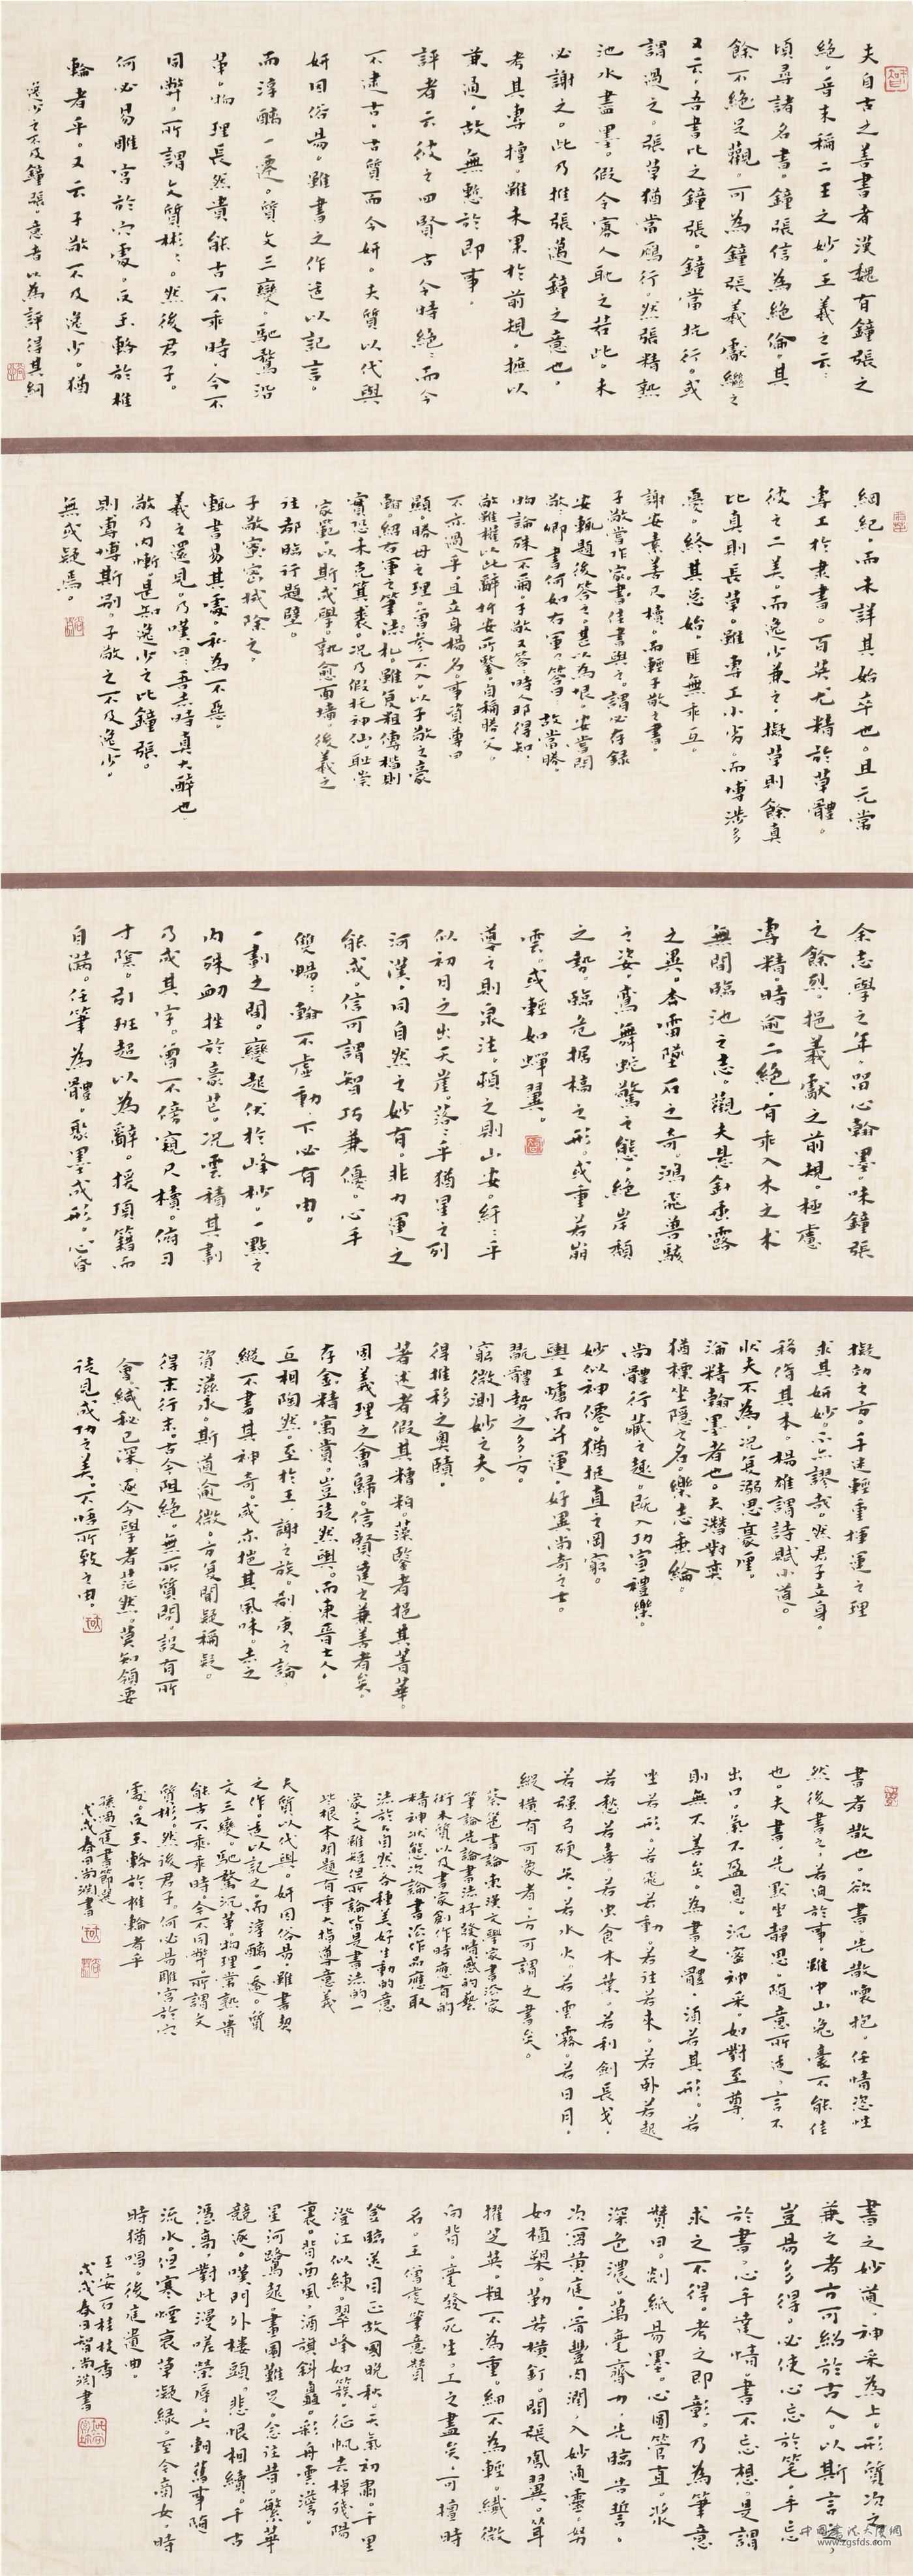 夫自古之善書者漢魏有鐘張之
絕。晉末稱二王之妙。王羲之云：
頃尋諸名書。鐘張信為絕倫。其
餘不絕足觀。可為鐘張羲獻繼之
又云。吾書比之鐘張。鐘當抗行。或
謂過之。張草猶當雁行。然張精熟
池水盡墨。假令寡人耽之若此。未
必謝之。此乃推張邁鐘之意也。
考其專擅。雖未果於前規。摭以
兼通。故無慙於即事。
評者云彼之四賢古今特絕：而今
不逮古。古質而今妍。夫質以代興
妍因俗易。雖書之作適以記言。
而淳醨一遷。質文三變。馳騖沿
革。物理長然貴能古不乖時。今不
同弊。所謂文質彬：。然後君子。
何必易雕宮於穴處。反玉輅於椎
輪者乎。又云子敬不及逸少。猶
逸少之不及鐘張。意者以為評得其綱
綱紀。而未詳其始卒也。且元常
專工於隸書。百英尤精於草體。
彼之二美。而逸少兼之。擬草則餘真
比真則長草。雖專工小劣。而博涉多
優。終其總始。匪無乖互。
謝安素善尺櫝。而輕子敬之書。
子敬嘗作家書佳書與之。謂必存錄
安輒題後答之。甚以為恨。安嘗問
敬。卿書何如右軍。答曰。故當勝。
物論殊不爾。子敬又答。時人那得知。
敬雖權以此辭折安所鑒。自稱勝父。
不亦過乎。且立身揚名。事資尊曰
顯。勝母之理。曾參不入。以子敬之豪
翰。紹右軍之筆法札。雖復粗傳楷則
實恐未克箕裘。況乃假托神仙。恥崇
家範。以斯成學。孰愈面墻。後羲之
往都臨行題壁。
子敬密密拭除之。
輒書易其處。私為不惡。
羲之還見。乃嘆曰：吾去時真大醉也
敬乃內慚。是知逸少之比鐘張。
則專博斯別。子敬之不及逸少。
無或疑焉。
余志學之年。留心翰墨。味鐘張
之餘烈。挹羲獻之前規。極慮
專精。時逾二紀。有乖入木之術
無間臨池之志。觀夫懸針垂露
之異。奔雷墜石之奇。鴻飛獸駭
之姿。鸞舞蛇驚之態。絕岸頹
之勢。臨危據槁之形。或重若崩
雲。或輕如蟬翼。
導之則泉注。頓之則山安。纖：乎
似初月之出天崖。落：乎猶星之列
河漢。同自然之妙有。非力運之
能成。信可謂智巧兼優。心手
雙暢：翰不虛動。下必有由。
一劃之間。變起伏於峰杪。一點之
內殊衄挫於豪芒。況雲積其劃
乃成其字。曾不傍窺尺櫝。俯習
寸陰。引班超以為辭。援項籍而
自滿。任筆為體。聚墨成形。心昏
擬效之方。手迷輕重揮運之理
求其妍妙。不亦謬哉。然君子立身。
務修其本。楊雄謂詩賦小道。
狀夫不為。況復溺思豪厘。
淪精翰墨者也。夫潛對弈
猶標坐隱之名。樂志垂綸。
尚體行藏之趣。既入功宣禮樂。
妙似神僊。猶挺直之罔窮。
與工爐而並運。好異尚奇之士。
翫體勢之多方。
窮微測妙之夫。
得推移之奧賾。
著述者假其糟粕。藻鑒者挹其菁華。
固義理之會歸。信賢達之兼善者矣。
存金精寓賞。豈徒然與。而東晉士人。
互相陶然。至於王謝之族。郗庾之論
縱不書其神奇。咸亦挹其風味。去之
資滋永。斯道逾微。方復聞疑稱疑。
得末行末。古今阻絕。無所質問。設有所
會。緘秘已深。逐令學者茫然。莫知領要
徒見成功之美。不悟所致之由。
書者散也。欲書先散懷抱。任情恣性
然後書之。若迫於事。雖中山兔毫不能佳
也。夫書先默坐靜思。隨意所適。言不
出口。氣不盈息。沉密神采。如對至尊。
則無不善矣。為書之體。須若其形。若
坐若形。若飛若動。若往若來。若臥若起
若愁若喜。若虫食木葉。若利劍長戈。
若強弓硬矢。若水火。若雲霧。若日月。
縱橫有可象者。方可謂之書矣。
蔡邕書論東漢文學家書法家
筆論先論書法抒發情感的藝
術本質以及書家創作時應有的
精神狀態次論書法作品應取
法於大自然各種美好生動的意
象文雖短但所論皆是書法的一
些根本問題有重大指導意義
夫質以代興。妍因俗易。雖書契
之作。適以記之。而淳醨一遷。質
文三變。馳騖沉革。物理常熟。貴
能古不乖乖時。今不同弊。所謂文
質彬。然後君子。何必易雕宮於穴
處。反玉輅於椎輪者乎
孫過庭書節選
戊戌春田尚潤書
書之妙道。神采為上。形質次之。
兼之者方可紹於古人。以斯言之。
豈易多得。必使心忘於笔。手忘
於書。心手達情。書不忘想。是謂
求之不得。考之即彰。乃為筆意
贊曰。剡紙易墨。心圓管直。漿
深色濃。萬毫齊力。先臨告誓。
次寫黃庭。骨豐肉潤。入妙通靈。努
如植槊。勒若橫釘。開張鳳翼。聳
擢芝英。粗不為重。細不為輕。纖微
向背。毫發死生。工之盡矣。可擅時
名。王僧虔筆意贊
登臨送目正故國晚秋。天氣初肅。千里
澄江似練。翠峰如簇。征帆去棹殘陽
裏。背西風。酒旗斜矗。彩舟雲澹。
星河鷺起。畫圖難足。念往昔。繁華
競逐。嘆門外樓頭。悲恨相續。千古
憑高。對此漫嗟榮辱。六朝舊事隨
流水。但寒煙衰草凝綠。至今商女。時
時猶唱。後庭遺曲。
王安石桂枝香
戊戌春日智尚潤書
中国书法大展网
www.zgsfds.com